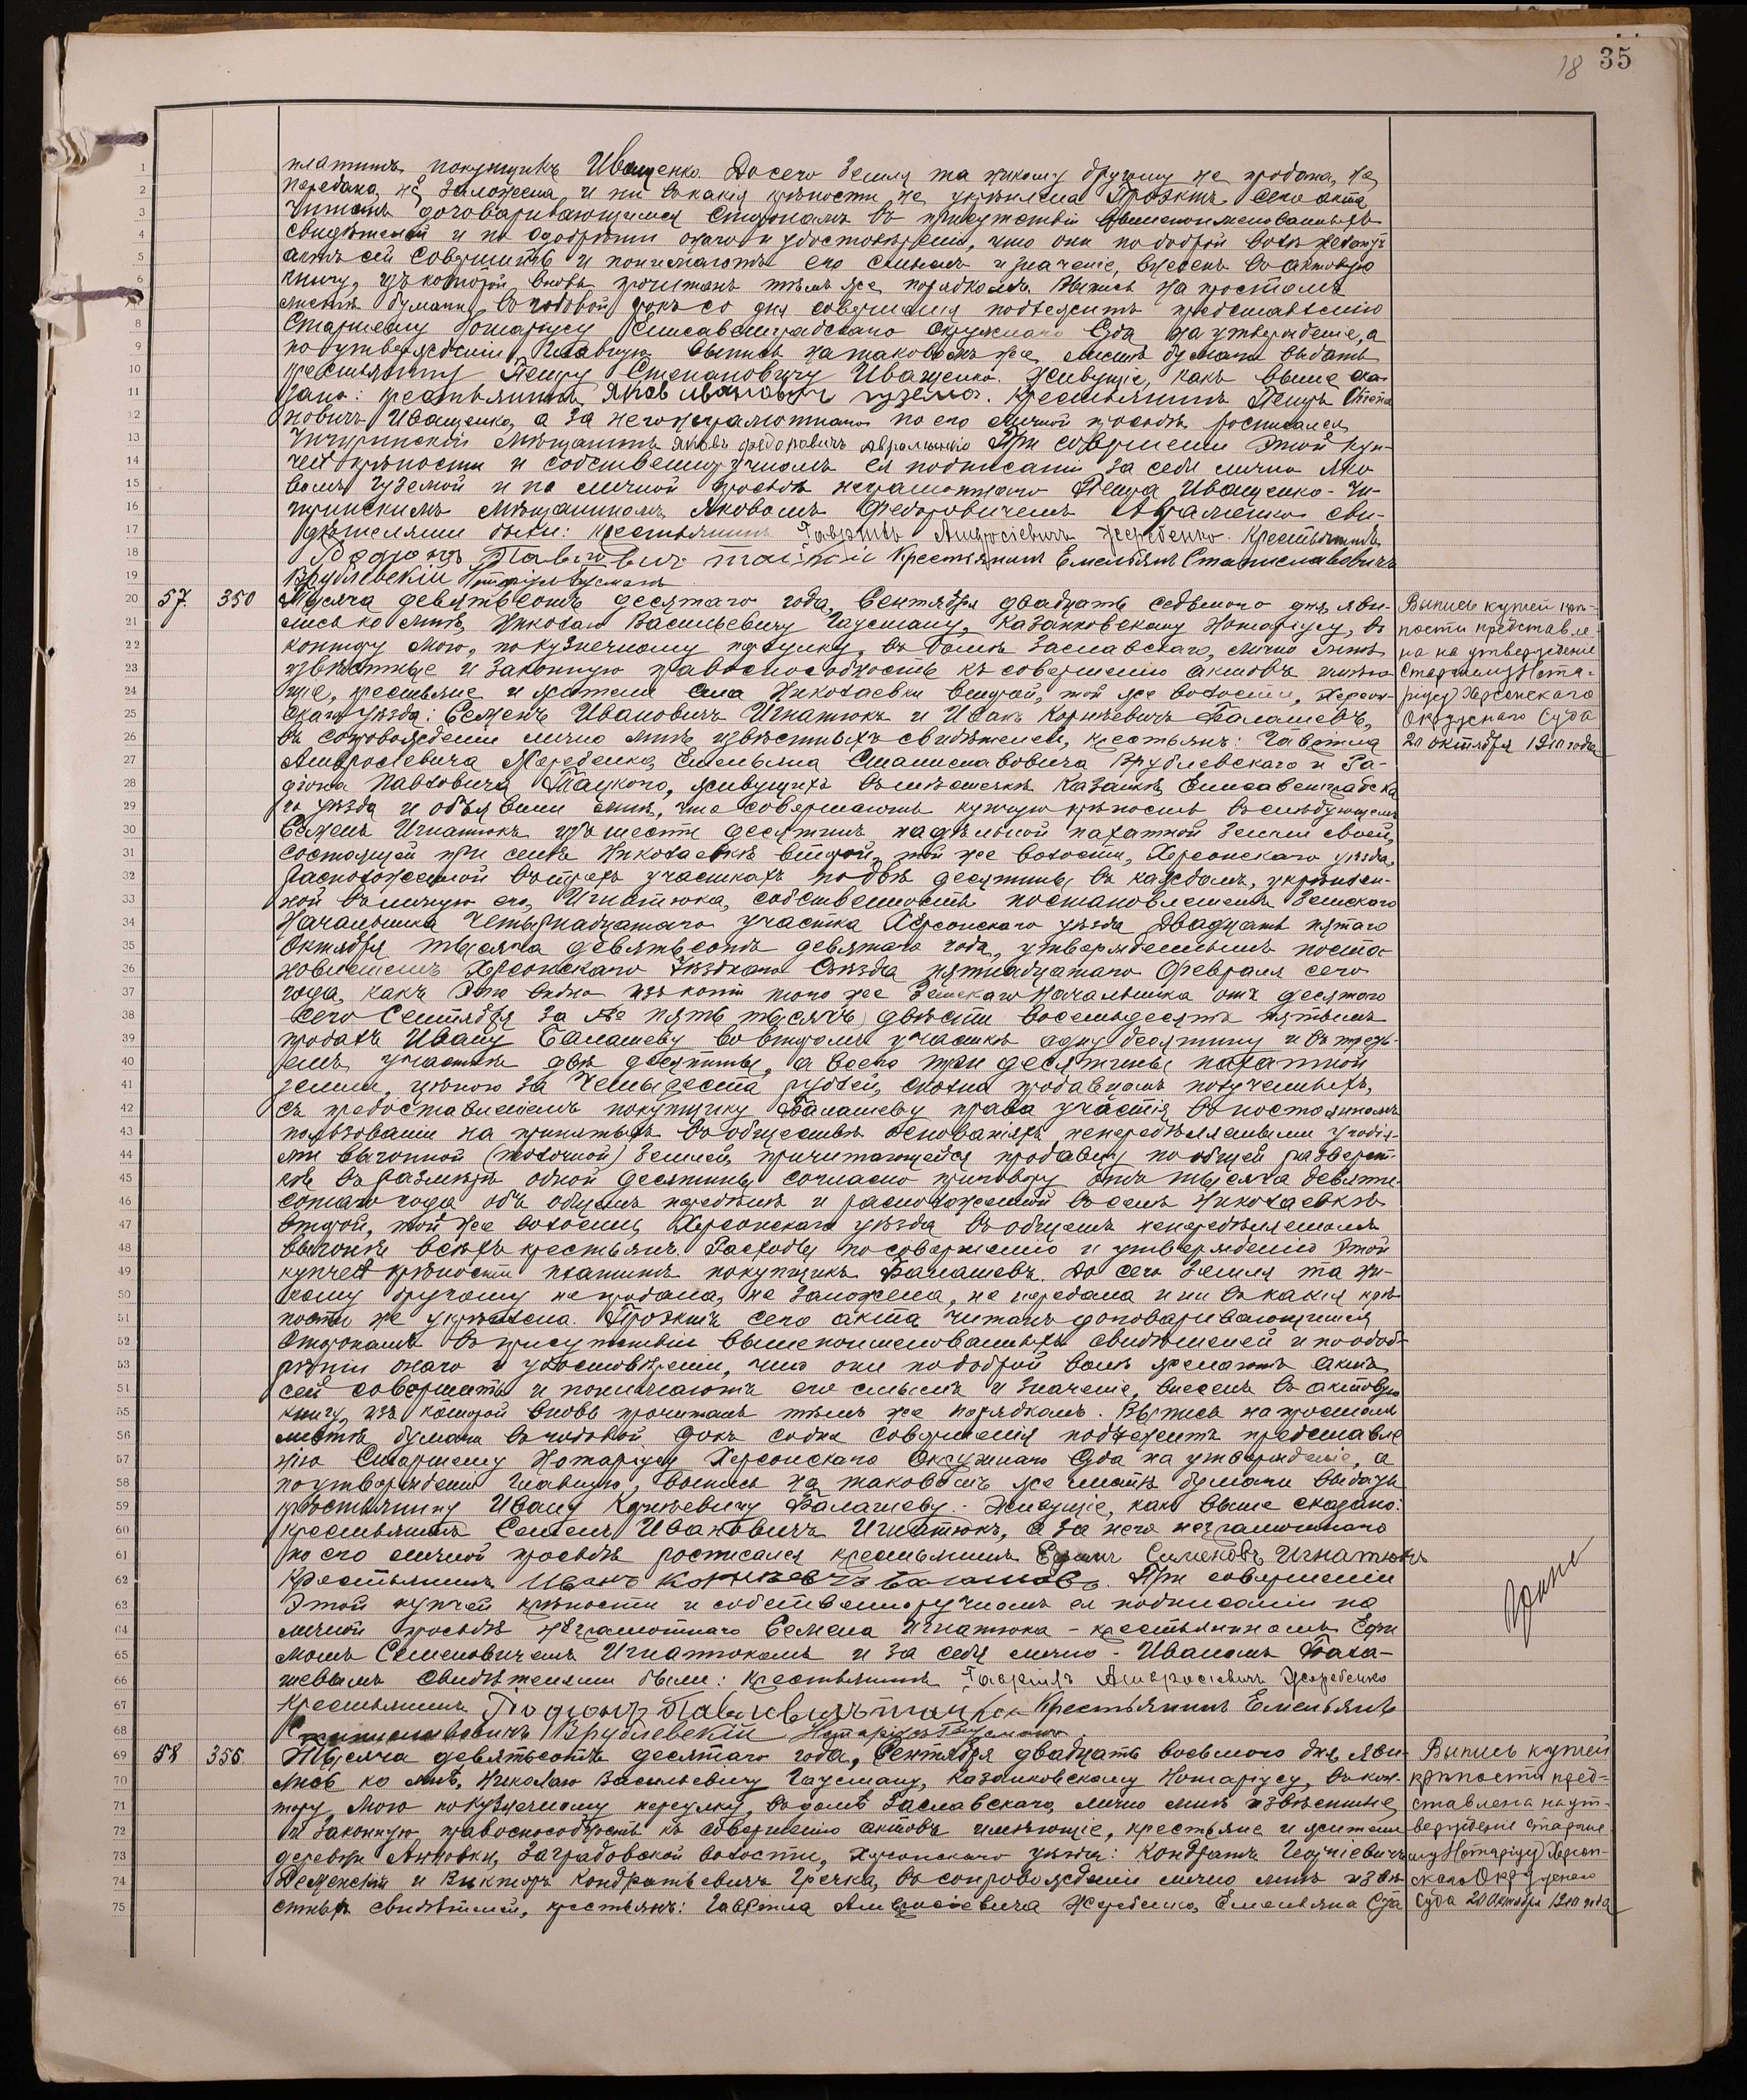 18 35
платитъ покупщикъ Иващенко. До сего земля та никому другому не продана, не
передана, не заложена и ни въ какія крѣпости не укрѣплена. Проэктъ сего акта
читанъ договаривающимся сторонамъ въ присутствіи вышепоименованныхъ
свидѣтелей и по одобреніи онаго и удостовѣреніи, что они по доброй волѣ желаютъ
актъ сей совершить и понимаютъ его смыслъ и значеніе, внесенъ въ актовую
книгу, изъ которой вновь прочитанъ тѣмъ же порядкомъ. Выпись на простомъ
листѣ бумаги въ годовой срокъ со дня совершенія подлежитъ представленію
Старшему Нотаріусу Елисаветградскаго Окружнаго Суда на утвержденіе, а
по утвержденіи, главную выпись на таковомъ же листѣ бумаги выдать
крестьянину Петру Степановичу Иващенко. Живущіе, какъ выше ска-
зано: крестьянинъ Яковъ Ивановичъ Гузема. Крестьянинъ Петръ Степа
новичъ Иващенко, а за него неграмотнаго по его личной просьбѣ росписался
Чигиринскій мѣщанинъ Яковъ Федоровичъ Авраменко При совершеніи этой куп-
чей крѣпости и собственноручномъ ея подписаніи за себя лично Яко
вомъ Гуземой и по личной просьбѣ неграмотнаго Петра Иващенко - Чи-
гиринскимъ мѣщаниномъ Яковомъ Федоровичемъ Авраменко сви-
дѣтелями были: крестьянинъ Гавріилъ Амвросіевичъ Жеребенко. Крестьянинъ
Родіонъ Павловичъ Тацкій Крестьянинъ Емельянъ Станиславовичъ
Врублевскій Нотаріусъ Гаусманъ
57. 350 Тысяча девятьсотъ десятаго года, Сентября двадцать седьмого дня, яви-
лись ко мнѣ, Николаю Васильевичу Гаусману, Казанковскому Нотаріусу, въ
контору мою, по кузнечному переулку, въ домѣ Заславскаго, лично мнѣ
извѣстные и законную правоспособность къ совершенію актовъ имѣю
щіе, крестьяне и жители села Николаевки второй, той же волости, Херсон-
скаго уѣзда: Семенъ Ивановичъ Игнатюкъ и Иванъ Корнѣевичъ Балашевъ,
въ сопровожденіи лично мнѣ извѣстныхъ свидѣтелей, крестьянъ: Гавріила
Амвросіевича Жеребенко, Емельяна Станиславовича Врублевскаго и Ро-
діона Павловича Тацкого, живущихъ въ мѣстечкѣ Казанкѣ, Елисаветградска
го уѣзда и объявили мнѣ, что совершаютъ купчую крѣпость въ слѣдующемъ
Семенъ Игнатюкъ изъ шести десятинъ надѣльной пахатной земли своей,
состоящей при селѣ Николаевкѣ второй, той же волости, Херсонскаго уѣзда,
расположенной въ трехъ участкахъ по двѣ десятины въ каждомъ, укрѣплен-
ной въ личную его, Игнатюка, собственность постановленіемъ Земскаго
Начальника четырнадцатаго участка Херсонскаго уѣзда двадцать пятаго
Октября тысяча девятьсотъ девятаго года, утвержденнымъ поста-
новленіемъ Херсонскаго Уѣзднаго Съѣзда пятнадцатаго Февраля сего
года, какъ это видно изъ копіи того же Земскаго Начальника отъ десятаго
сего Сентября за № пять тысячъ двѣсти восемьдесятъ пятымъ
продалъ Ивану Балашеву во второмъ участкѣ одну десятину и въ треть-
емъ участкѣ двѣ десятины, а всего три десятины пахатной
земли, цѣною за четыреста рублей, сполна продавцомъ полученныхъ,
съ предоставленіемъ покупщику Балашеву права участія въ постоянномъ
пользованіи на принятыхъ въ обществѣ основаніяхъ непередѣляемыми угодія-
ми выгонной (толочной) землей, причитающейся продавцу по общей разверст-
кѣ въ размѣрѣ одной десятины согласно приговору отъ тысяча девяти
сотаго года объ общемъ передѣлѣ и расположенной въ селѣ Николаевкѣ
второй, той же волости, Херсонскаго уѣзда въ общемъ непередѣляемомъ
выгонѣ всѣхъ крестьянъ. Расходы по совершенію и утвержденію этой
купчей крѣпости платитъ покупщикъ Балашевъ. До сего земля та ни-
кому другому не продана, не заложена, не передана и ни въ какія крѣ
пости не укрѣплена. Проэктъ сего акта читанъ договаривающимся
сторонамъ въ присутствіи вышепоименованныхъ свидѣтелей и по одоб-
реніи онаго и удостовѣреніи, что они по доброй волѣ желаютъ актъ
сей совершить и понимаютъ его смыслъ и значеніе, внесенъ въ актовую
книгу, изъ которой вновь прочитанъ тѣмъ же порядкомъ. Выпись на простомъ
листѣ бумаги въ годовой срокъ со дня совершенія подлежитъ представле
нію Старшему Нотаріусу Херсонскаго Окружнаго Суда на утвержденіе, а
по утвержденіи главную, выпись на таковомъ же листѣ бумаги выдать
крестьянину Ивану Корнѣевичу Балашеву. Живущіе, какъ выше сказано:
крестьянинъ Семенъ Ивановичъ Игнатюкъ, а за него неграмотнаго
по его личной просьбѣ росписался крестьянинъ Ефимъ Сименовъ Игнатюкъ
Крестьянинъ Иванъ Корнѣевичъ Балашовъ. При совершеніи
этой купчей крѣпости и собственноручномъ ея подписаніи по
личной просьбѣ неграмотнаго Семена Игнатюка - крестьяниномъ Ефи
момъ Семеновичемъ Игнатюкомъ и за себя лично - Иваномъ Бала-
шевымъ свидѣтелями были: крестьянинъ Гавріилъ Амвросіевичъ Жеребенко
Крестьянинъ Родіонъ Павловичъ Тацкій Крестьянинъ Емельянъ
Станиславовичъ Врублевскій Нотаріусъ Гаусманъ
Выпись купчей крѣ-
пости представле-
на на утвержденіе
Старшему Нота-
ріусу Херсонскаго
Окружнаго Суда
20 октября 1910 года
58 355. Тысяча девятьсотъ десятаго года, Сентября двадцать восьмого дня, яви-
лись ко мнѣ, Николаю Васильевичу Гаусману, Казанковскому Нотаріусу, въ кон-
тору мою по кузнечному переулку, въ домѣ Заславскаго, лично мнѣ извѣстные
и законную правоспособность къ совершенію актовъ имѣющіе, крестьяне и жители
деревни Анновки, Заградовской волости, Херсонскаго уѣзда: Кондратъ
Деменскій и Викторъ Кондратьевичъ Гречка, въ сопровожденіи лично мнѣ извѣ
стныхъ свидѣтелей, крестьянъ: Гавріила Амвросіевича Жеребенко, Емельяна Ста
Выпись купчей
крѣпости пред-
ставлена на ут-
вержденіе Старше
му Нотаріусу Херсон-
скаго Окружнаго
Суда 20 Октября 1910 года